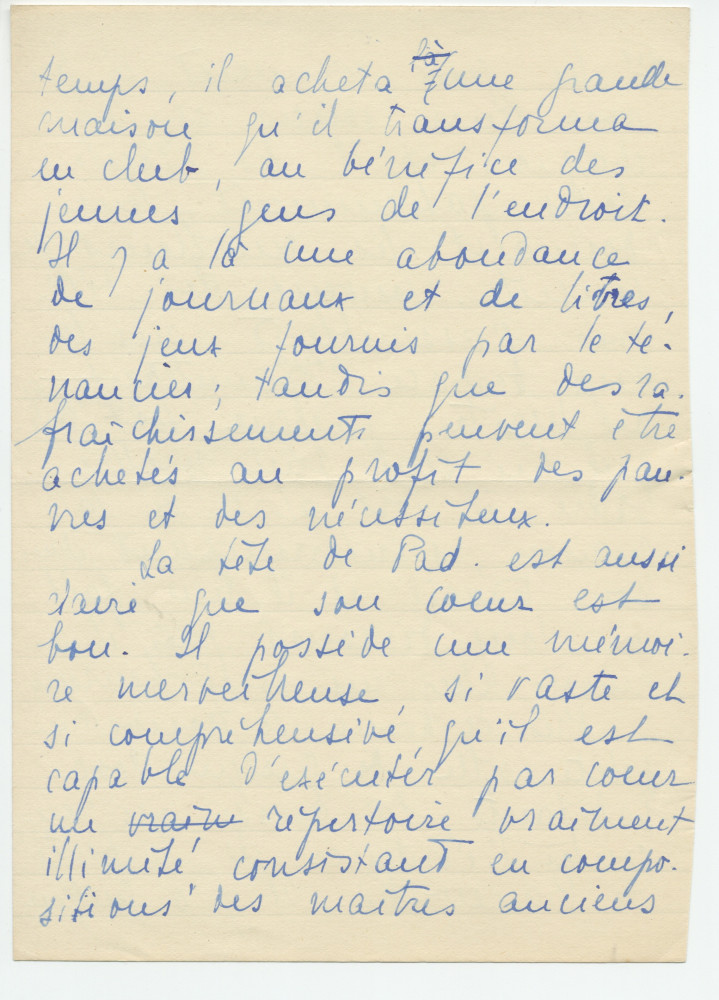 temps, il acheta là une grande
maison qu'il transforma
en club, au bénéfice des
jeunes gens de l'endroit.
Il y a là une abondance
de journaux et de livres,
des jeux fournis par le te-
nancier; tandis que des ra-
fraîchissements peuvent être
achetés au profit des pau-
vres et des nécessiteux.
La tête de Pad. est aussi
claire que son coeur est
bon. Il possède une mémoi-
re merveilleuse, si vaste et
si compréhensive, qu'il est
capable d'exécuter par coeur
un vraim répertoire vraiment
illimité consistant en compo-
sitions des maîtres anciens